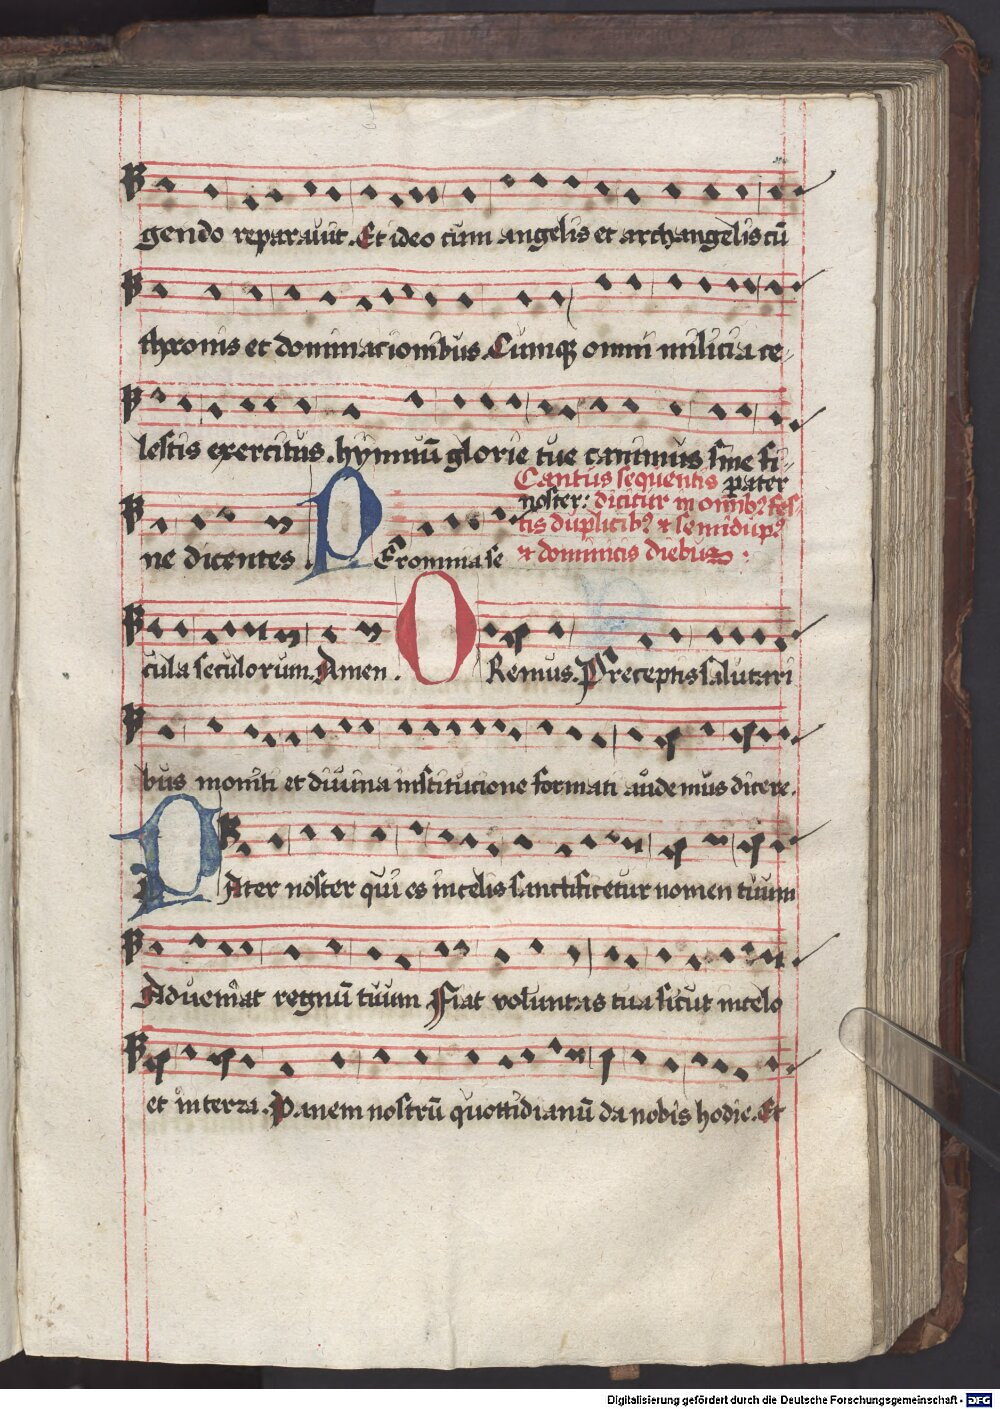 gendo reparauit. Et ideo cum angelis et archangelis cū
thronis et dominacionibus. Cumqꝫ omni milicia ce-
lestis exercitus. hymnū glorie tue canimus sine fi-
Cantus sequentis pater
noster: dicitur in omnibꝰ fes-
tis duplicibꝰ et semidupꝰ
et dominicis diebus:
ne dicentes. PEr omnia se
cula seculorum. Amen. ORemus. Preceptis salutari
bus moniti et diuina institucione formati audemus dicere.
PAter noster qui es in celis sanctificetur nomen tuum
Adueniat regnū tuum Fiat voluntas tua sicut in celo
et in terra. Panem nostrū quottidianū da nobis hodie. Et
Digitalisierung gefördert durch die Deutsche Forschungsgemeinschaft - DFG